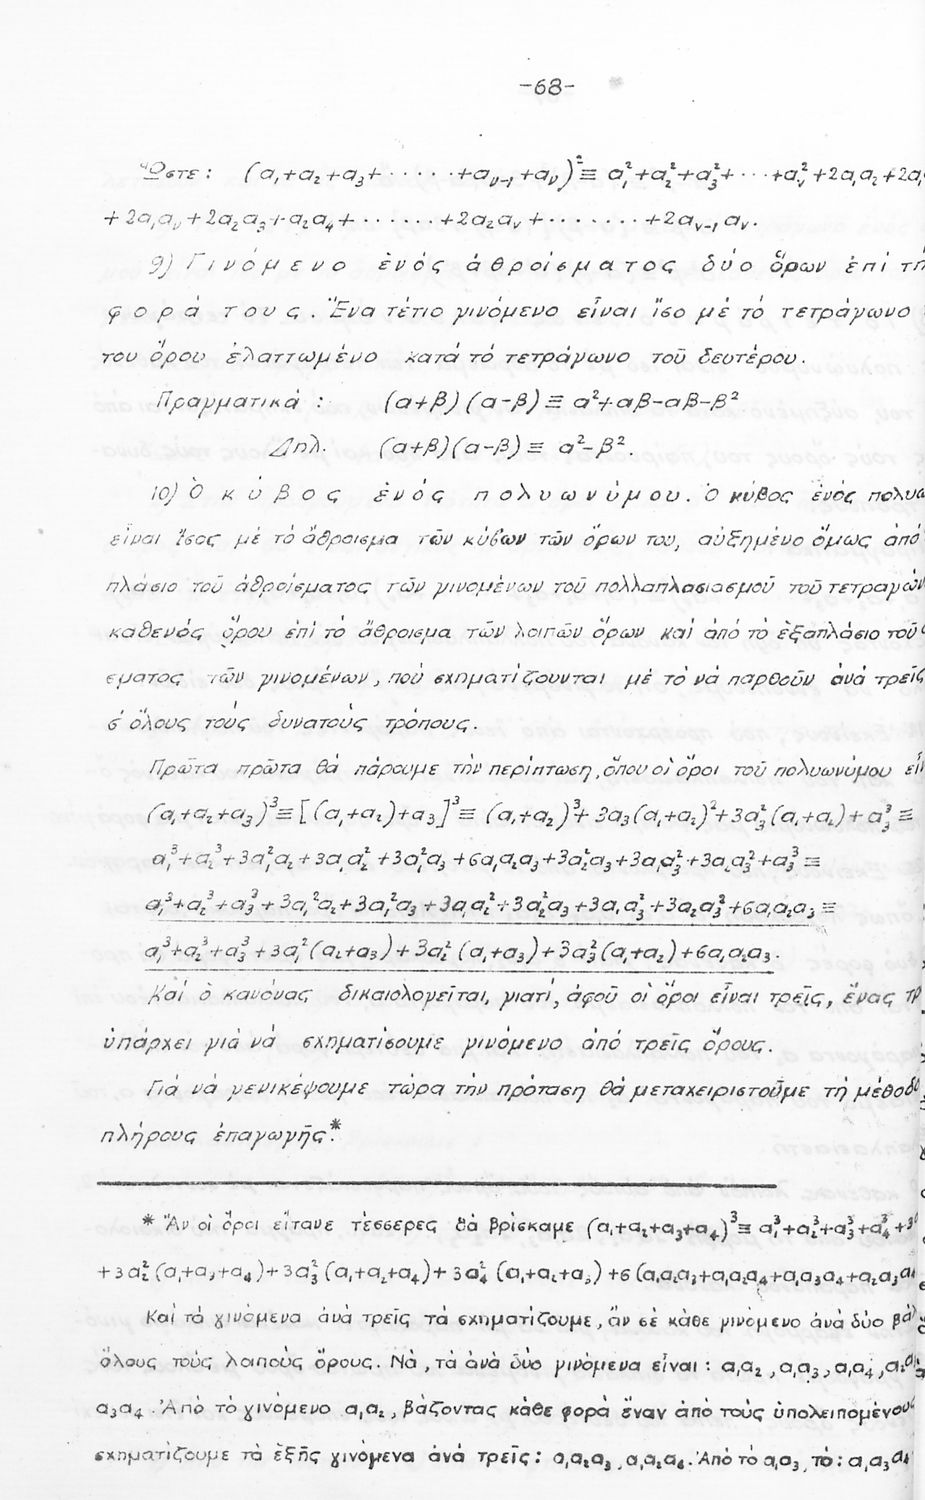 -68-
Ὥστε: (α₁+α₂+α₃+·····+αᵥ₋₁+αᵥ)²≡ α₁²+α₂²+α₃²+···+αᵥ²+2α₁α₂+2α₁
+2α₁αᵥ+2α₂α₃+α₂α₄+······+2α₂αᵥ+·······+2αᵥ₋₁αᵥ.
9) Γινόμενο ἑνός ἀθροίσματος δύο ὅρων ἐπί τή
φορά τους. Ἕνα τέτιο γινόμενο εἶναι ἴσο μέ τό τετράγωνο
του ὅρου ἐλαττωμένο κατά τό τετράγωνο τοῦ δευτέρου.
Πραγματικά : (α+β)(α-β)≡α²+αβ-αβ-β²
Δηλ. (α+β)(α-β)≡ α²-β².
10) Ὁ κύβος ἑνός πολυωνύμου. Ὁ κύβος ἑνός πολυω
εἶναι ἴσος μέ τό ἄθροισμα τῶν κύβων τῶν ὅρων του, αὐξημένο ὅμως ἀπό
πλάσιο τοῦ ἀθροίσματος τῶν γινομένων τοῦ πολλαπλασιασμοῦ τοῦ τετραγών
καθενός ὅρου ἐπί τό ἄθροισμα τῶν λοιπῶν ὅρων καί ἀπό τό ἑξαπλάσιο τοῦ
σματος τῶν γινομένων, πού σχηματίζουνται μέ τό νά παρθοῦν ἀνά τρεῖς
σ' ὅλους τούς δυνατούς τρόπους.
Πρῶτα πρῶτα θά πάρουμε τήν περίπτωση, ὅπου οἱ ὅροι τοῦ πολυωνύμου εἶν
(α₁+α₂+α₃)³≡[(α₁+α₂)+α₃]³≡ (α₁+α₂)³+3α₃(α₁+α₂)²+3α₃²(α₁+α₂)+α₃³≡
α₁³+α₂³+3α₁²α₂+3α₁α₂²+3α₁²α₃+6α₁α₂α₃+3α₂²α₃+3α₁α₃²+3α₂α₃²+α₃³≡
α₁³+α₂³+α₃³+3α₁²α₂+3α₁²α₃+3α₁α₂²+3α₂²α₃+3α₁α₃²+3α₂α₃²+6α₁α₂α₃≡
α₁³+α₂³+α₃³+3α₁²(α₂+α₃)+3α₂²(α₁+α₃)+3α₃²(α₁+α₂)+6α₁α₂α₃.
Καί ὁ κανόνας δικαιολογεῖται, γιατί, ἀφοῦ οἱ ὅροι εἶναι τρεῖς, ἕνας τρ
ὑπάρχει γιά νά σχηματίσουμε γινόμενο ἀπό τρεῖς ὅρους.
Γιά νά γενικέψουμε τώρα τήν πρόταση θά μεταχειριστοῦμε τή μέθοδο
πλήρους ἐπαγωγῆς.*
* Ἄν οἱ ὅροι εἴτανε τέσσερες θά βρίσκαμε (α₁+α₂+α₃+α₄)³≡ α₁³+α₂³+α₃³+α₄³+3
+3α₂²(α₁+α₃+α₄)+3α₃²(α₁+α₂+α₄)+3α₄²(α₁+α₂+α₃)+6(α₁α₂α₃+α₁α₂α₄+α₁α₃α₄+α₂α₃α₄
Καί τά γινόμενα ἀνά τρεῖς τά σχηματίζουμε, ἄν σέ κάθε γινόμενο ἀνά δύο βάλ
ὅλους τούς λοιπούς ὅρους. Νά, τά ἀνά δύο γινόμενα εἶναι: α₁α₂, α₁α₃, α₁α₄, α₂α₃
α₃α₄. Ἀπό τό γινόμενο α₁α₂, βάζοντας κάθε φορά ἕναν ἀπό τούς ὑπολειπομένου
σχηματίζουμε τά ἑξῆς γινόμενα ἀνά τρεῖς: α₁α₂α₃, α₁α₂α₄. Ἀπό τό α₁α₃, τό: α₁α₃α₄